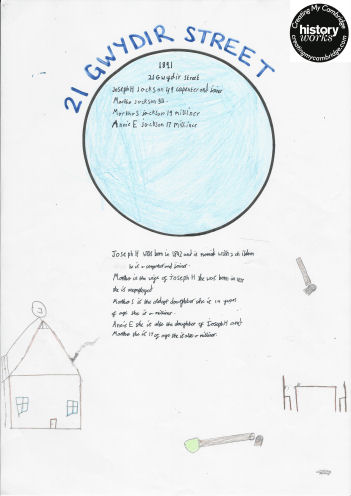 Creating My Cambridge
history
works
creatingmycambridge.com
21 GWYDIR STREET
1891
21 Gwydir street
Joseph H Jackson 49 carpenter and Joiner
Martha Jackson
Martha S Jackson 19 milliner
Annie E Jackson 17 milliner
Joseph H was born in 1842 and is married with 2 children
he is a carpenter and Joiner.
Martha is the wife of Joseph H she was born in
she is unemployed
Martha S is the oldest daughter who is 19 years
of age she is a milliner.
Annie E she is also the daughter of Joseph H and
Martha she is 17 of age she is also a milliner.